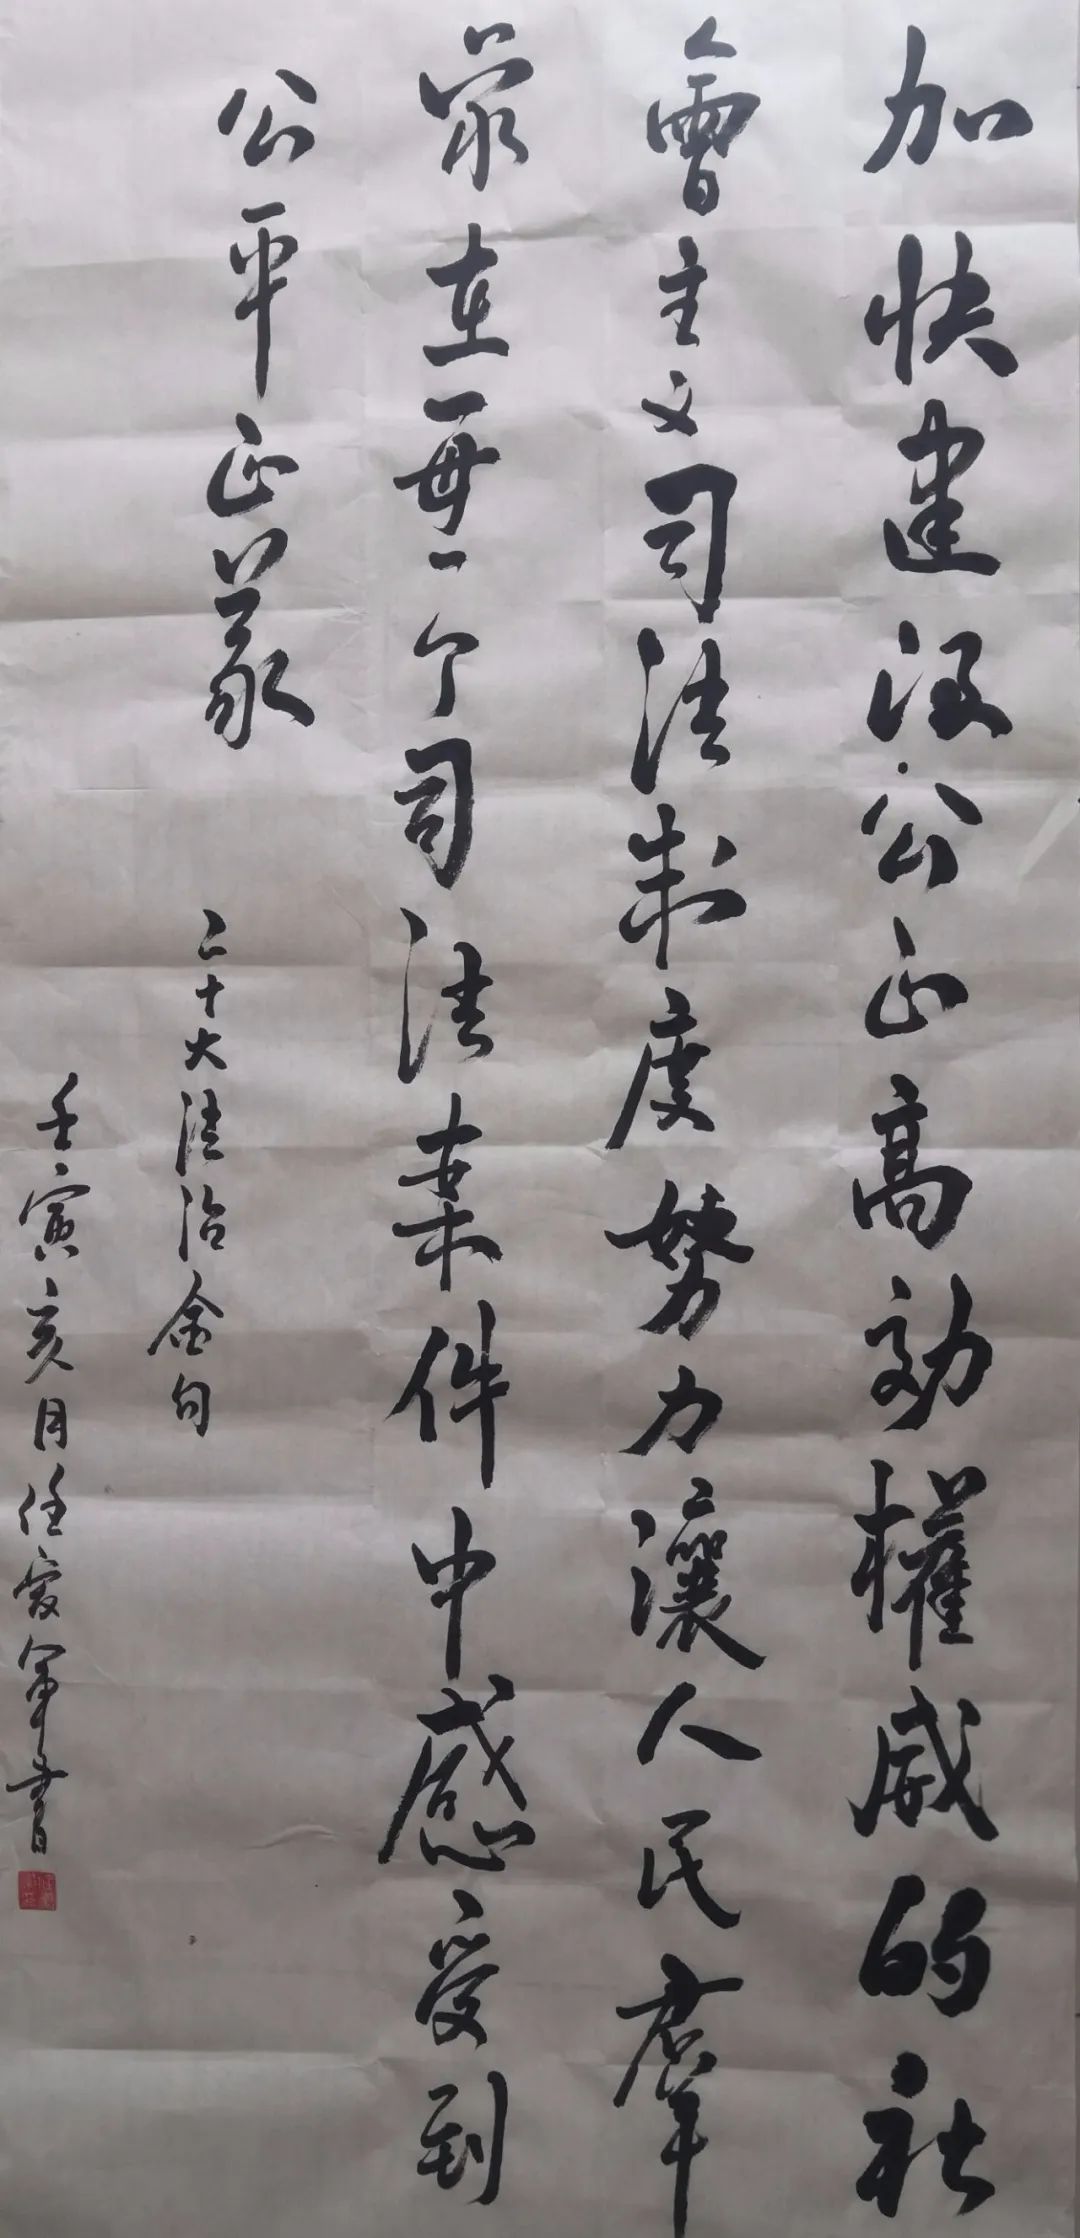 加快建设公正高効權威的社
會主义司法制度努力讓人民羣
衆在每一个司法案件中感受到
公平正義
二十大法治金句
壬寅亥月任軍書